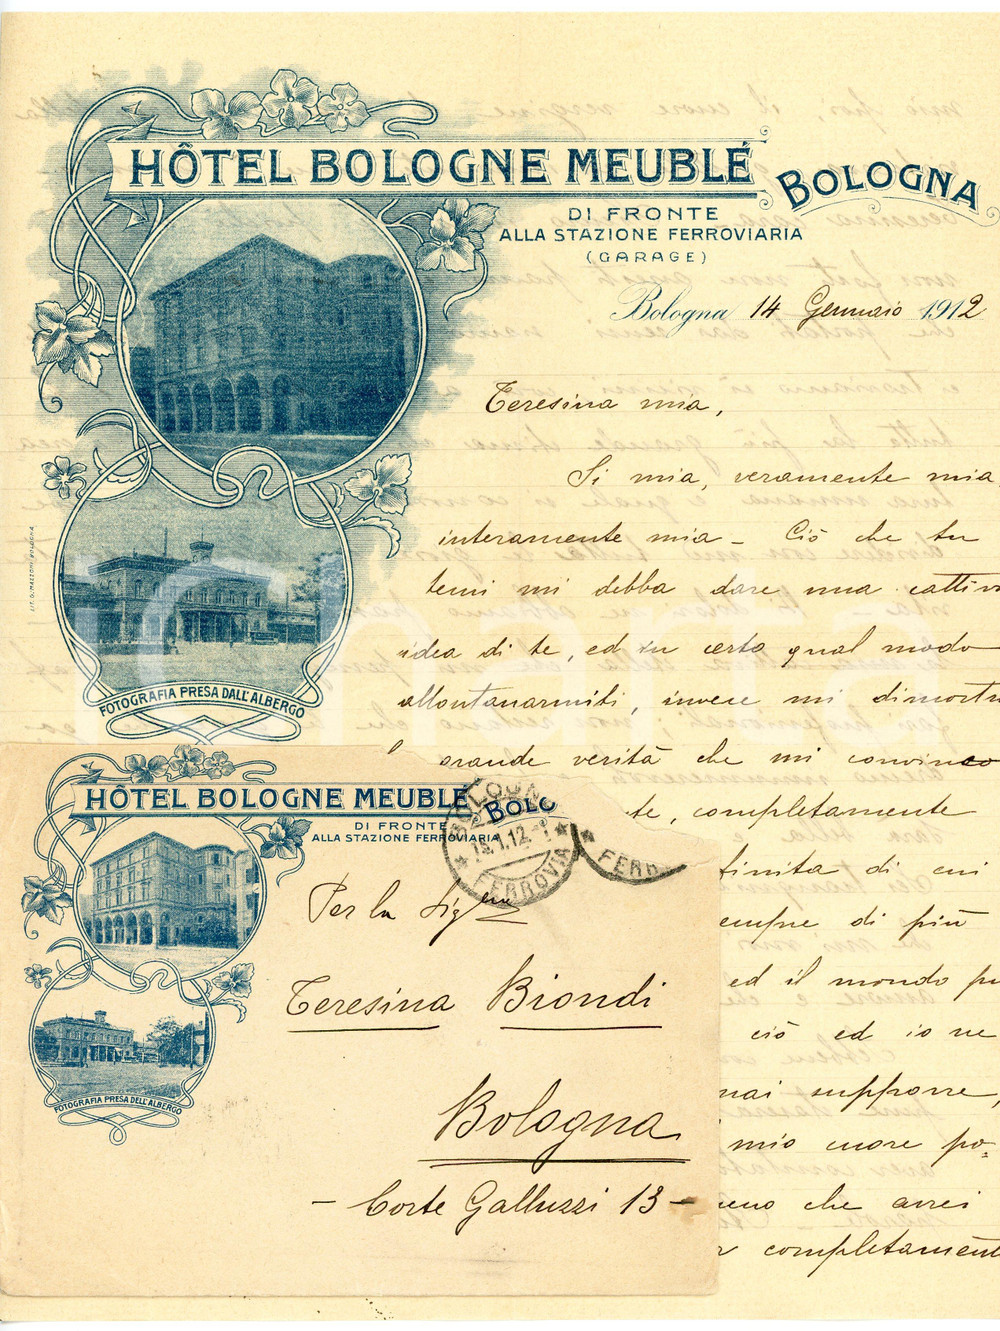 HÔTEL BOLOGNE MEUBLÉ BOLOGNA
DI FRONTE
ALLA STAZIONE FERROVIARIA
(GARAGE)
Bologna 14 Gennaio 1912
Teresina mia,
Si mia, veramente mia,
interamente mia – Ciò che tu
temi mi debba dare una cattiva
idea di te, ed in certo qual modo
allontanarmiti, invece mi dimostra
grande verità che mi convinco
te, completamente
finita di cui
empre di più
ed il mondo pu
ciò ed io ne
mai supporre,
mio cuore po-
eno che avrei
completamente
LIT. G. MAZZONI BOLOGNA
FOTOGRAFIA PRESA DALL'ALBERGO
HÔTEL BOLOGNE MEUBLÉ BOLO
DI FRONTE
ALLA STAZIONE FERROVIARIA
BOLOGN
1.12
FERROVIA
FERR
Per la Sig.na
Teresina Biondi
Bologna
– Corte Galluzzi 13 –
FOTOGRAFIA PRESA DALL'ALBERGO
charta